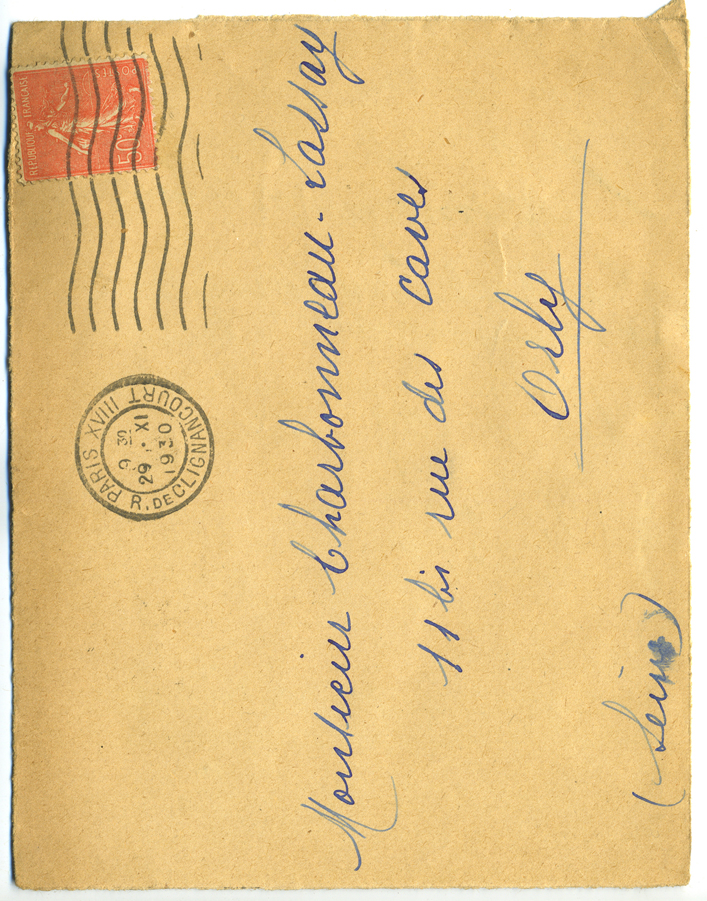 PARIS XVIII
R. DE CLIGNANCOURT
9 30
29 · XI
1930
REPUBLIQUE FRANÇAISE
POSTES
50c
Monsieur Charbonneau-Lassay
11 bis rue des caves
Orly
(Seine)